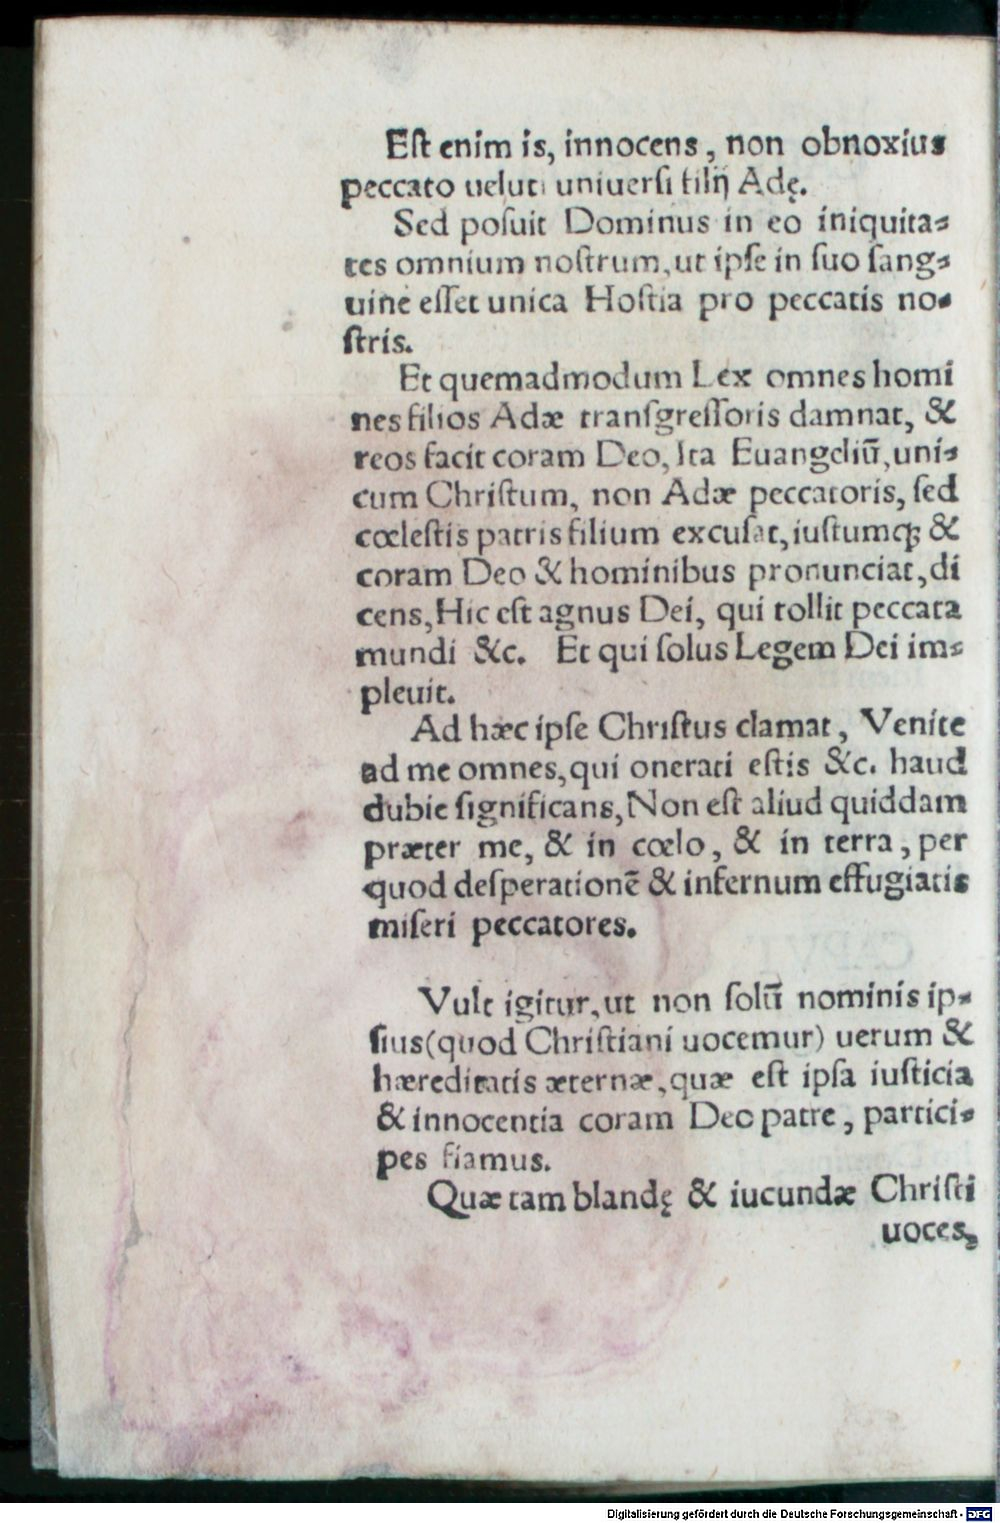 Eſt enim is, innocens, non obnoxius
peccato ueluti uniuerſi filij Adę.
Sed poſuit Dominus in eo iniquita⸗
tes omnium noſtrum, ut ipſe in ſuo ſang⸗
uine eſſet unica Hoſtia pro peccatis no⸗
ſtris.
Et quemadmodum Lex omnes homi
nes filios Adæ tranſgreſſoris damnat, &
reos facit coram Deo, Ita Euangeliū, uni⸗
cum Chriſtum, non Adæ peccatoris, ſed
cœleſtis patris filium excuſat, iuſtumq; &
coram Deo & hominibus pronunciat, di
cens, Hic eſt agnus Dei, qui tollit peccata
mundi &c. Et qui ſolus Legem Dei im⸗
pleuit.
Ad hæc ipſe Chriſtus clamat, Venite
ad me omnes, qui onerati eſtis &c. haud
dubie ſignificans, Non eſt aliud quiddam
præter me, & in cœlo, & in terra, per
quod deſperationē & infernum effugiatis
miſeri peccatores.
Vult igitur, ut non ſolū nominis ip⸗
ſius (quod Chriſtiani uocemur) uerum &
hæreditatis æternæ, quæ eſt ipſa iuſticia
& innocentia coram Deo patre, partici⸗
pes fiamus.
Quæ tam blandę & iucundæ Chriſti
uoces,
Digitalisierung gefördert durch die Deutsche Forschungsgemeinschaft - DFG